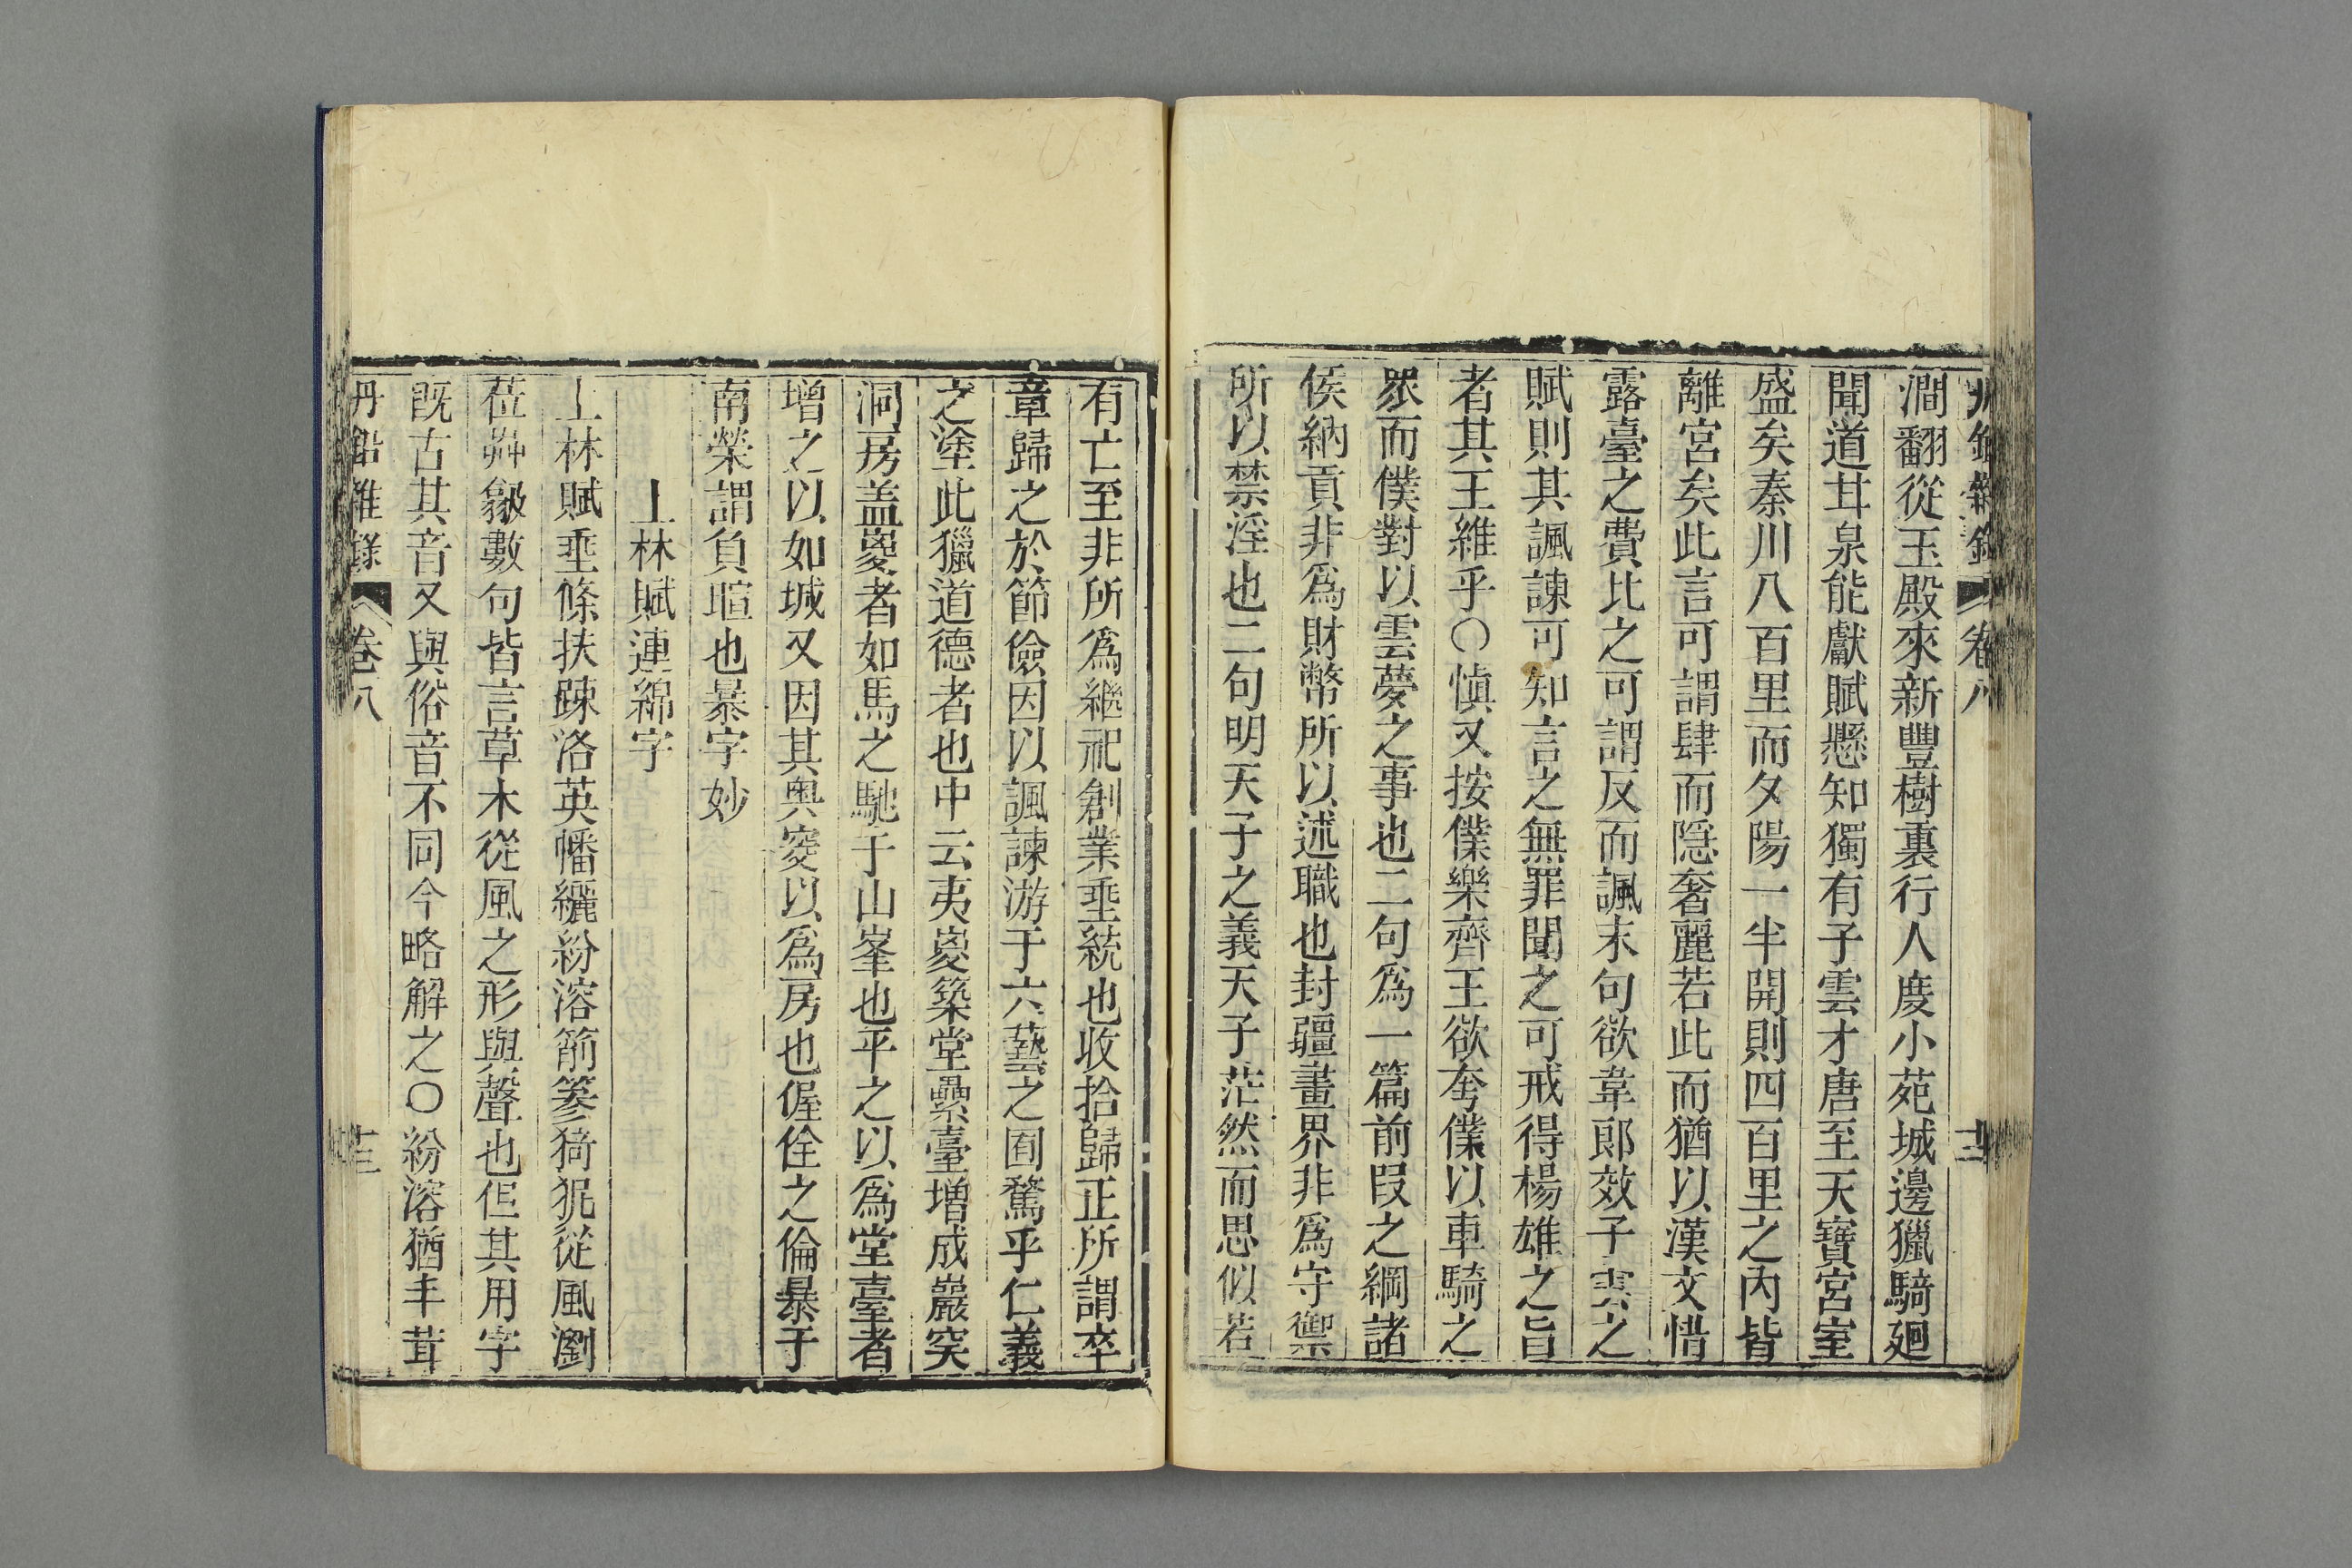 丹鉛雜錄 卷八 十二
澗翻從玉殿來新豐樹裏行人度小苑城邊獵騎廻
聞道甘泉能獻賦懸知獨有子雲才唐至天寶宮室
盛矣秦川八百里而夕陽一半開則四百里之內皆
離宮矣此言可謂肆而隱奢麗若此而猶以漢文惜
露臺之費比之可謂反而諷末句欲韋郎效子雲之
賦則其諷諫可知言之無罪聞之可戒得楊雄之旨
者其王維乎○慎又按僕樂齊王欲夸僕以車騎之
衆而僕對以雲夢之事也二句爲一篇前叚之綱諸
侯納貢非爲財幣所以述職也封疆畫界非爲守禦
所以禁淫也二句明天子之義天子茫然而思似若
有亡至非所爲繼祀創業垂統也收拾歸正所謂卒
章歸之於節儉因以諷諫游于六藝之囿騖乎仁義
之塗此獵道德者也中云夷嵏築堂纍臺增成巖突
洞房盖嵏者如馬之馳于山峯也平之以爲堂臺者
增之以如城又因其奥窔以爲房也偓佺之倫暴于
南榮謂負暄也暴字妙
上林賦連綿字
上林賦垂條扶踈洛英幡纚紛溶箾篸猗狔從風瀏
莅芔歙數句皆言草木從風之形與聲也但其用字
旣古其音又與俗音不同今略解之○紛溶猶丰茸
丹鉛雜錄 卷八 十三